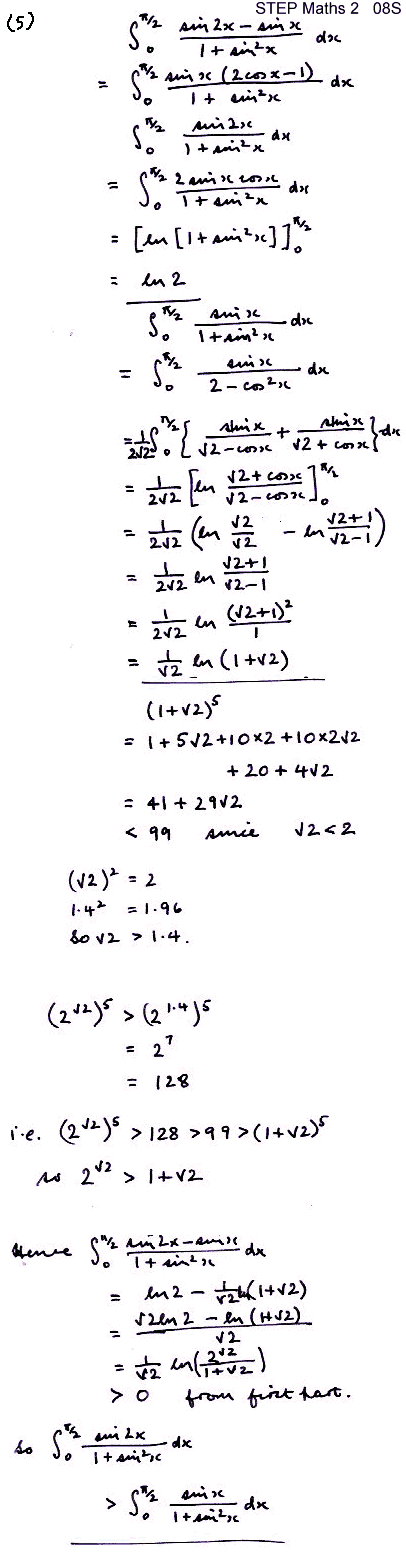 STEP Maths 2 08S
(5) ∫₀^(π/2) (sin 2x − sin x)/(1 + sin²x) dx
= ∫₀^(π/2) sin x (2cos x − 1)/(1 + sin²x) dx
∫₀^(π/2) sin 2x/(1 + sin²x) dx
= ∫₀^(π/2) 2 sin x cos x/(1 + sin²x) dx
= [ln [1 + sin²x]]₀^(π/2)
= ln 2
∫₀^(π/2) sin x/(1 + sin²x) dx
= ∫₀^(π/2) sin x/(2 − cos²x) dx
= 1/(2√2) ∫₀^(π/2) { sin x/(√2 − cos x) + sin x/(√2 + cos x) } dx
= 1/(2√2) [ln (√2 + cos x)/(√2 − cos x)]₀^(π/2)
= 1/(2√2) (ln √2/√2 − ln (√2+1)/(√2−1))
= 1/(2√2) ln (√2+1)/(√2−1)
= 1/(2√2) ln (√2+1)²/1
= 1/√2 ln (1+√2)
(1+√2)⁵
= 1 + 5√2 + 10×2 + 10×2√2
+ 20 + 4√2
= 41 + 29√2
< 99 since √2 < 2
(√2)² = 2
1.4² = 1.96
So √2 > 1.4.
(2^√2)⁵ > (2^1.4)⁵
= 2⁷
= 128
i.e. (2^√2)⁵ > 128 > 99 > (1+√2)⁵
so 2^√2 > 1+√2
Hence ∫₀^(π/2) (sin 2x − sin x)/(1 + sin²x) dx
= ln 2 − 1/√2 ln(1+√2)
= (√2 ln 2 − ln (1+√2))/√2
= 1/√2 ln(2^√2/(1+√2))
> 0 from first part.
So ∫₀^(π/2) sin 2x/(1 + sin²x) dx
> ∫₀^(π/2) sin x/(1 + sin²x) dx